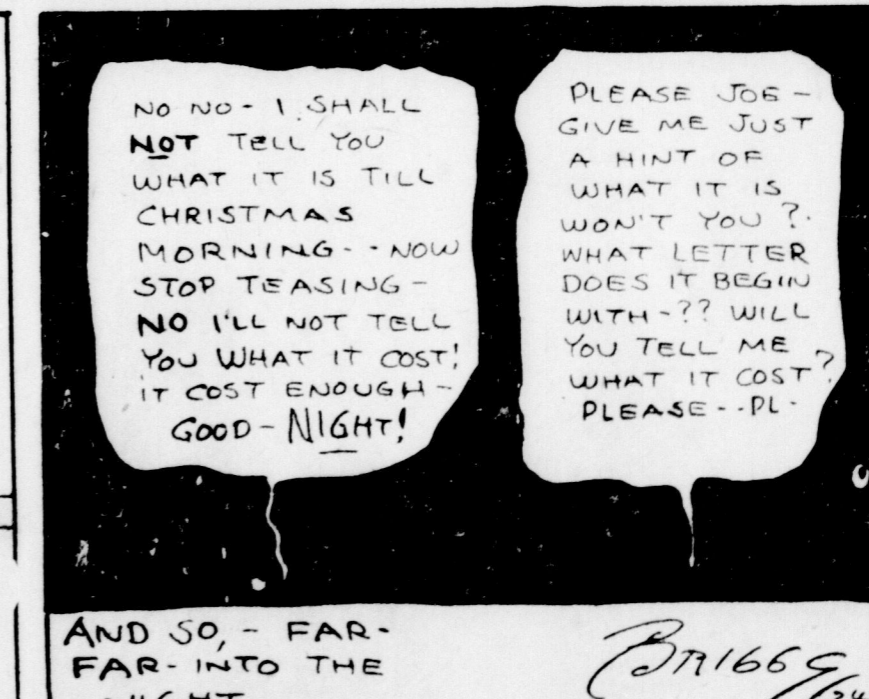 NO NO - I SHALL
NOT TELL YOU
WHAT IT IS TILL
CHRISTMAS
MORNING - - NOW
STOP TEASING -
NO I'LL NOT TELL
YOU WHAT IT COST!
IT COST ENOUGH -
GOOD - NIGHT!
PLEASE JOE -
GIVE ME JUST
A HINT OF
WHAT IT IS
WON'T YOU ?
WHAT LETTER
DOES IT BEGIN
WITH - ?? WILL
YOU TELL ME
WHAT IT COST?
PLEASE - - PL -
AND SO, - FAR -
FAR - INTO THE
NIGHT
BRIGGS
24